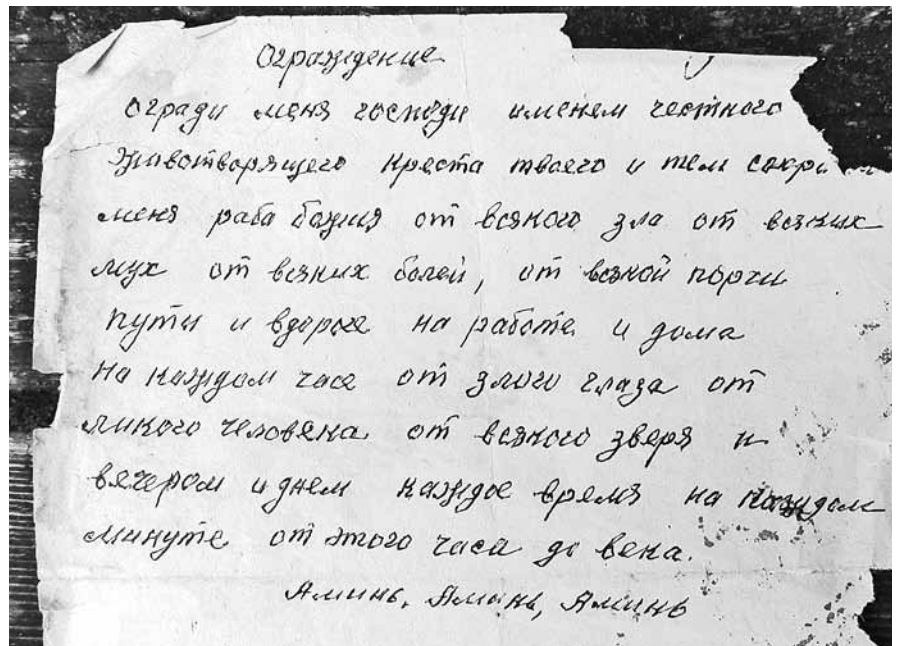 Ограждение
огради меня господи именем честного
животворящего креста твоего и тем сохри
меня раба божия от всякого зла от всяких
мук от всяких болей, от всякой порчи
пути и вдороге на работе и дома
на каждом часе от злого глаза от
лихого человека от всякого зверя и
вечером и днем каждое время на каждом
минуте от этого часа до века.
Аминь, Аминь, Аминь